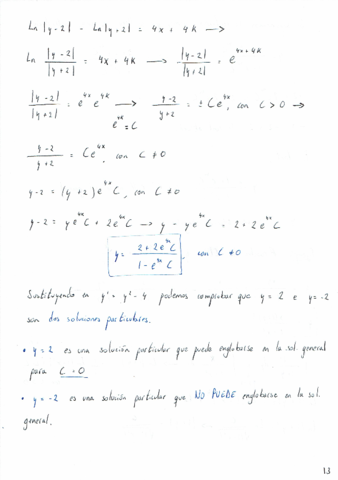 Ln |y-2| - Ln |y+2| = 4x + 4K →
Ln |y-2| / |y+2| = 4x + 4K → |y-2| / |y+2| = e^{4x+4K}
|y-2| / |y+2| = e^{4x} e^{4K} → y-2 / y+2 = ± C e^{4x}, con C > 0 →
e^{4K} = C
y-2 / y+2 = C e^{4x}, con C ≠ 0
y-2 = (y+2) e^{4x} C, con C ≠ 0
y-2 = y e^{4x} C + 2 e^{4x} C → y - y e^{4x} C = 2 + 2 e^{4x} C
y = 2 + 2 e^{4x} C / 1 - e^{4x} C, con C ≠ 0
Sustituyendo en y' = y² - 4 podemos comprobar que y = 2 e y = -2
son dos soluciones particulares.
• y = 2 es una solución particular que puede englobarse en la sol general
para C = 0
• y = -2 es una solución particular que NO PUEDE englobarse en la sol.
general.
13